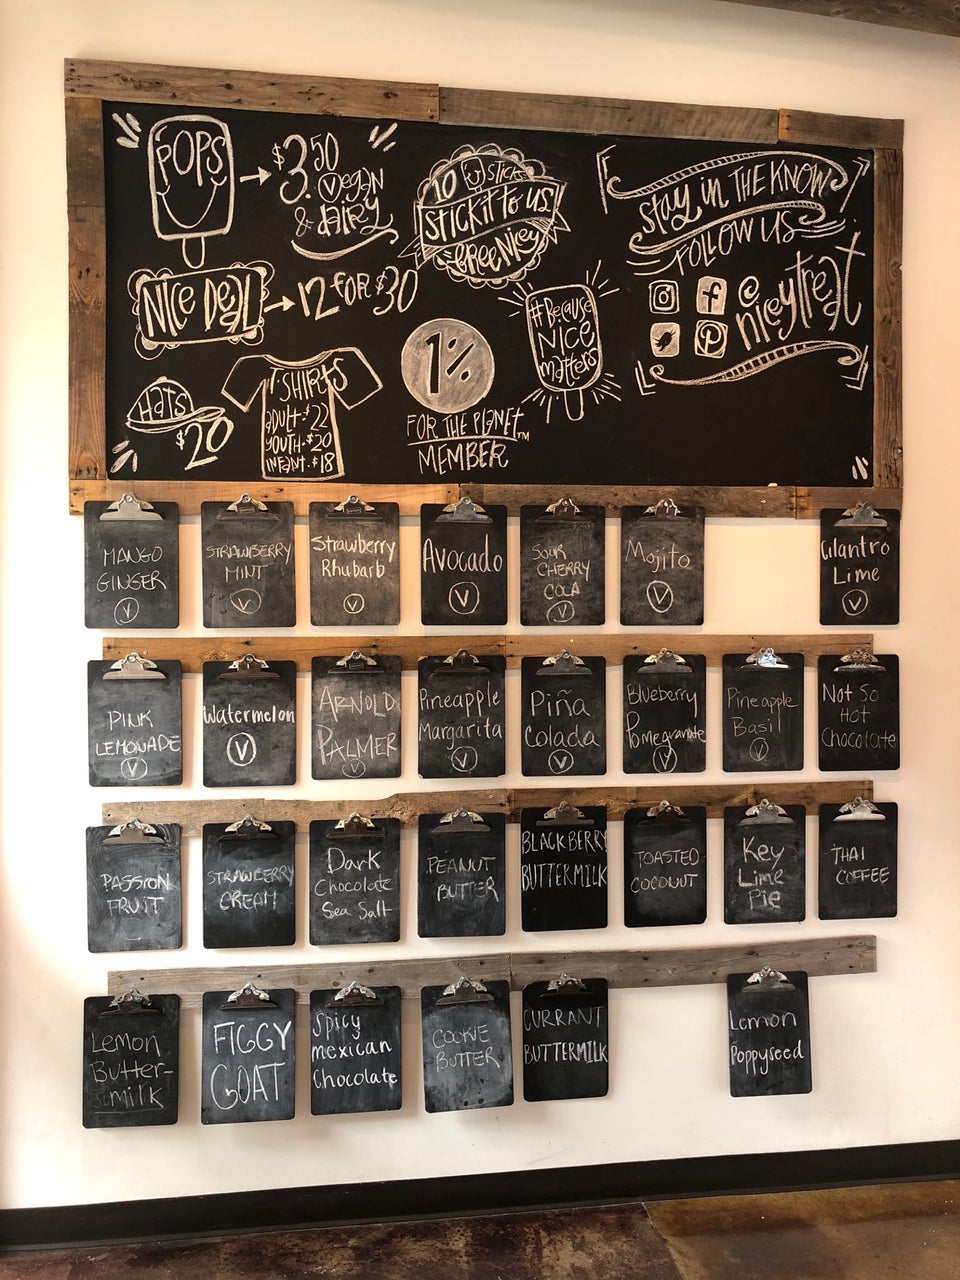 POPS
$3.50
Vegan
& dairy
NICE DEAL
12 FOR $30
HATS
$20
T-SHIRTS
ADULT-$22
YOUTH-$20
INFANT-$18
10 STICKS
STICK IT TO US!
FREE NICEY
1%
FOR THE PLANET™
MEMBER
#Because
NICE
matters
stay in THE KNOW
FOLLOW US
@niceytreat
MANGO
GINGER
V
STRAWBERRY
MINT
V
Strawberry
Rhubarb
V
Avocado
V
SOUR
CHERRY
COLA
V
Mojito
V
Cilantro
Lime
V
PINK
LEMONADE
V
Watermelon
V
ARNOLD
PALMER
V
Pineapple
Margarita
V
Piña
Colada
V
Blueberry
Pomegranate
V
Pineapple
Basil
V
Not So
Hot
Chocolate
PASSION
FRUIT
STRAWBERRY
CREAM
Dark
Chocolate
Sea Salt
PEANUT
BUTTER
BLACKBERRY
BUTTERMILK
TOASTED
COCONUT
Key
Lime
Pie
THAI
COFFEE
Lemon
Butter-
milk
FIGGY
GOAT
Spicy
mexican
Chocolate
COOKIE
BUTTER
CURRANT
BUTTERMILK
Lemon
Poppyseed